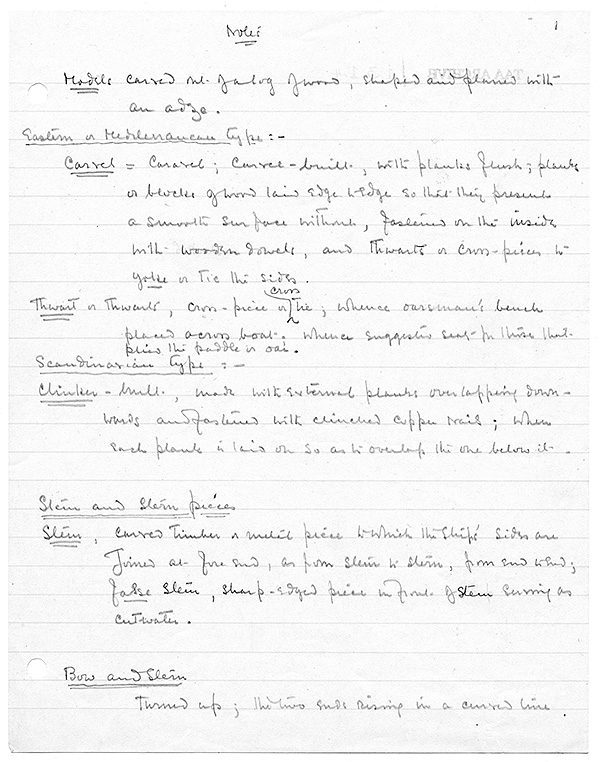 Notes
1
Models carved out of a log of wood, shaped and planed with
an adze.
Eastern or Mediterranean type:-
Carvel = Caravel; Carvel-built, with planks flush; planks
or blocks of wood laid edge to edge so that they present
a smooth surface without, fastened on the inside
with wooden dowels, and thwarts or cross-pieces to
yoke or tie the sides.
Thwart or thwarts, cross-piece or cross tie; whence oarsman's bench
placed across boat. Whence suggested seat for those that
plied the paddle or oar.
Scandinavian type :-
Clinker-built, made with external planks overlapping down-
wards and fastened with clinched copper nails; when
each plank is laid on so as to overlap the one below it.
Stem and stern pieces
Stem, curved timber or metal piece to which the ship's sides are
joined at fore end, as from stem to stern, from end to end;
false stem, sharp-edged piece in front of stem serving as
cutwater.
Bow and Stern
Turned up; the two ends rising in a curved line